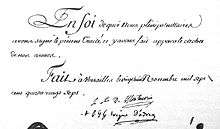 En foi de quoi Nous plenipotentiaires
avons signé le présent Traité et y avons fait apposer le cachet
de nos armes.
Fait à Versailles le vingt huit Novembre mil sept
cent quatre vingt sept.
le Cte de Montmorin
evêque d'Adran